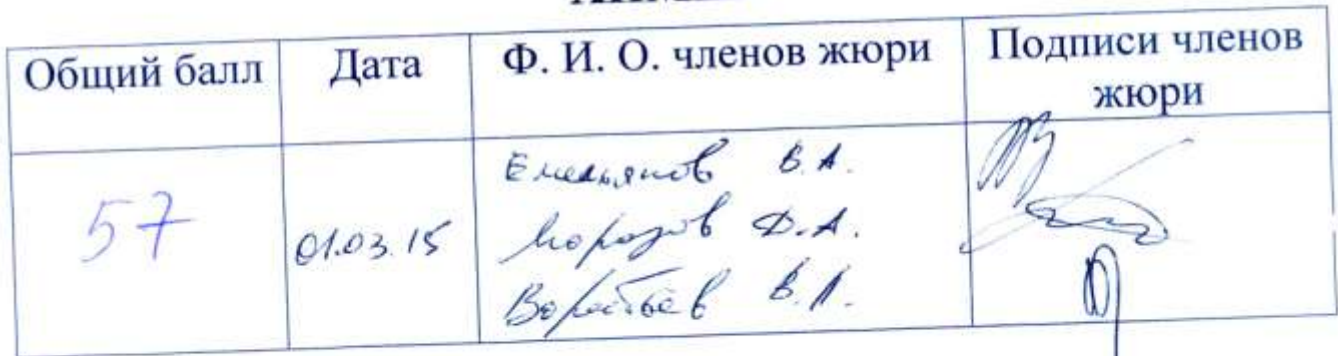 Общий балл Дата Ф. И. О. членов жюри Подписи членов жюри
57 01.03.15
Емельянов В.А.
Морозов Д.А.
Воробьёв В.А.